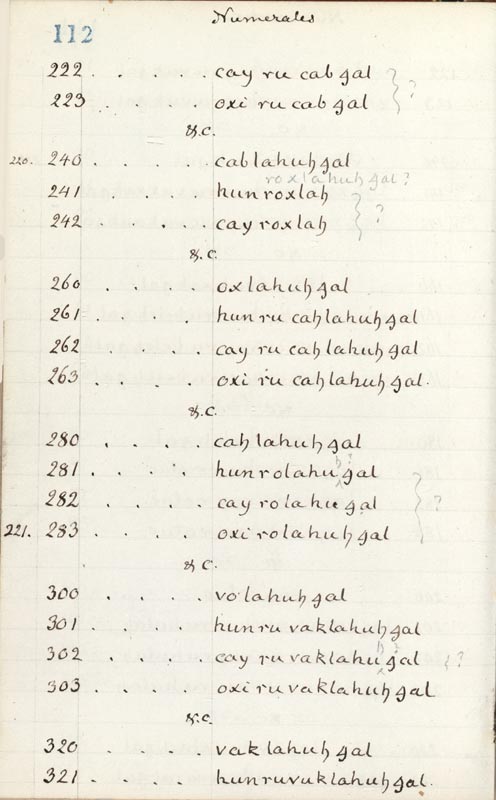 Numerales
112
222 . . . . cay ru cab gal } ?
223 . . . . oxi ru cab gal
&.c.
220. 240 . . . . cablahuh gal
roxlahuh gal?
241 . . . hun roxlah } ?
242 . . . cay roxlah
&.c.
260 . . . . oxlahuh gal
261 . . . . hun ru cahlahuh gal
262 . . . . cay ru cahlahuh gal
263 . . . . oxi ru cahlahuh gal.
&.c.
280 . . . . cahlahuh gal
281 . . . . hun rolahu gal
h?
282 . . . . cay rolahu gal } ?
221. 283 . . . . oxi rolahuh gal
&.c.
300 . . . . volahuh gal
301 . . . hun ru vaklahuh gal
302 . . . cay ru vaklahu gal { ?
h ?
303 . . . . oxi ru vaklahuh gal
&.c.
320 . . . . vaklahuh gal
321 . . . . hun ruvuklahuh gal.